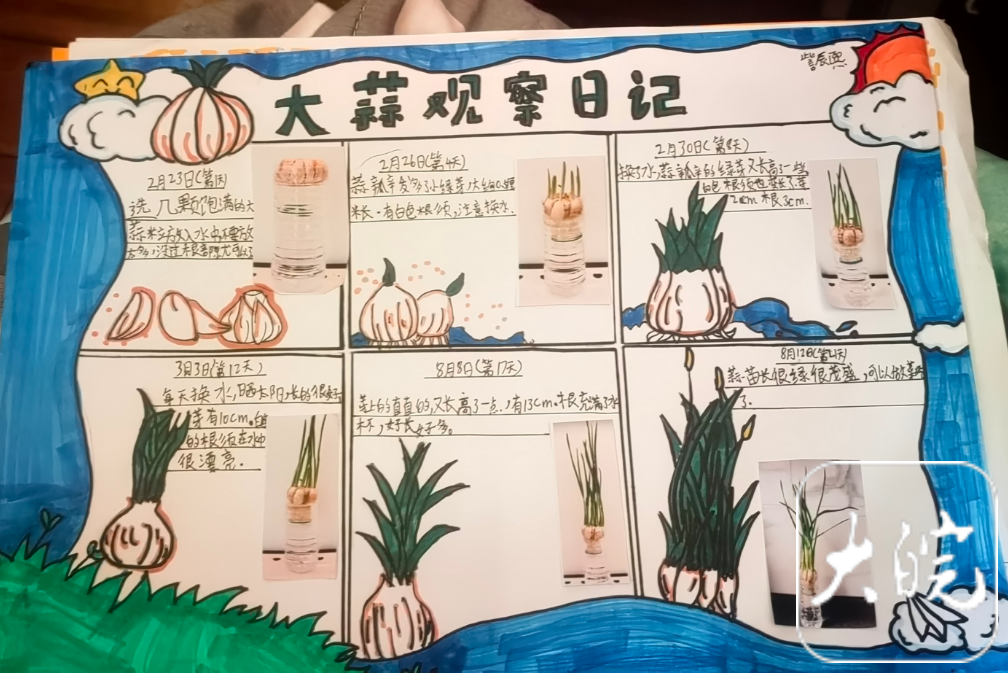 大蒜观察日记
辰熙
2月23日(第1天)
选几颗饱满的大
蒜米立方攵入水中,不要放
太多,没过根部就可以了
2月26日(第4天)
蒜瓣上发了小绿芽,大约
米长,有白色根须,注意换水.
2月30日(第8天)
换了水,蒜瓣上的绿芽又长高了一些
白色根须也
2cm 根3cm.
3月3日(第12天)
每天换水,晒太阳,长的很好
芽有10cm.白
的根须在水中
很漂亮.
8月8日(第17天)
直直的,又长高了一点.有13cm.根充满了水
杯,好长好多。
8月12日(第21天)
蒜苗长很绿很茂盛,可以做菜
了.
大皖